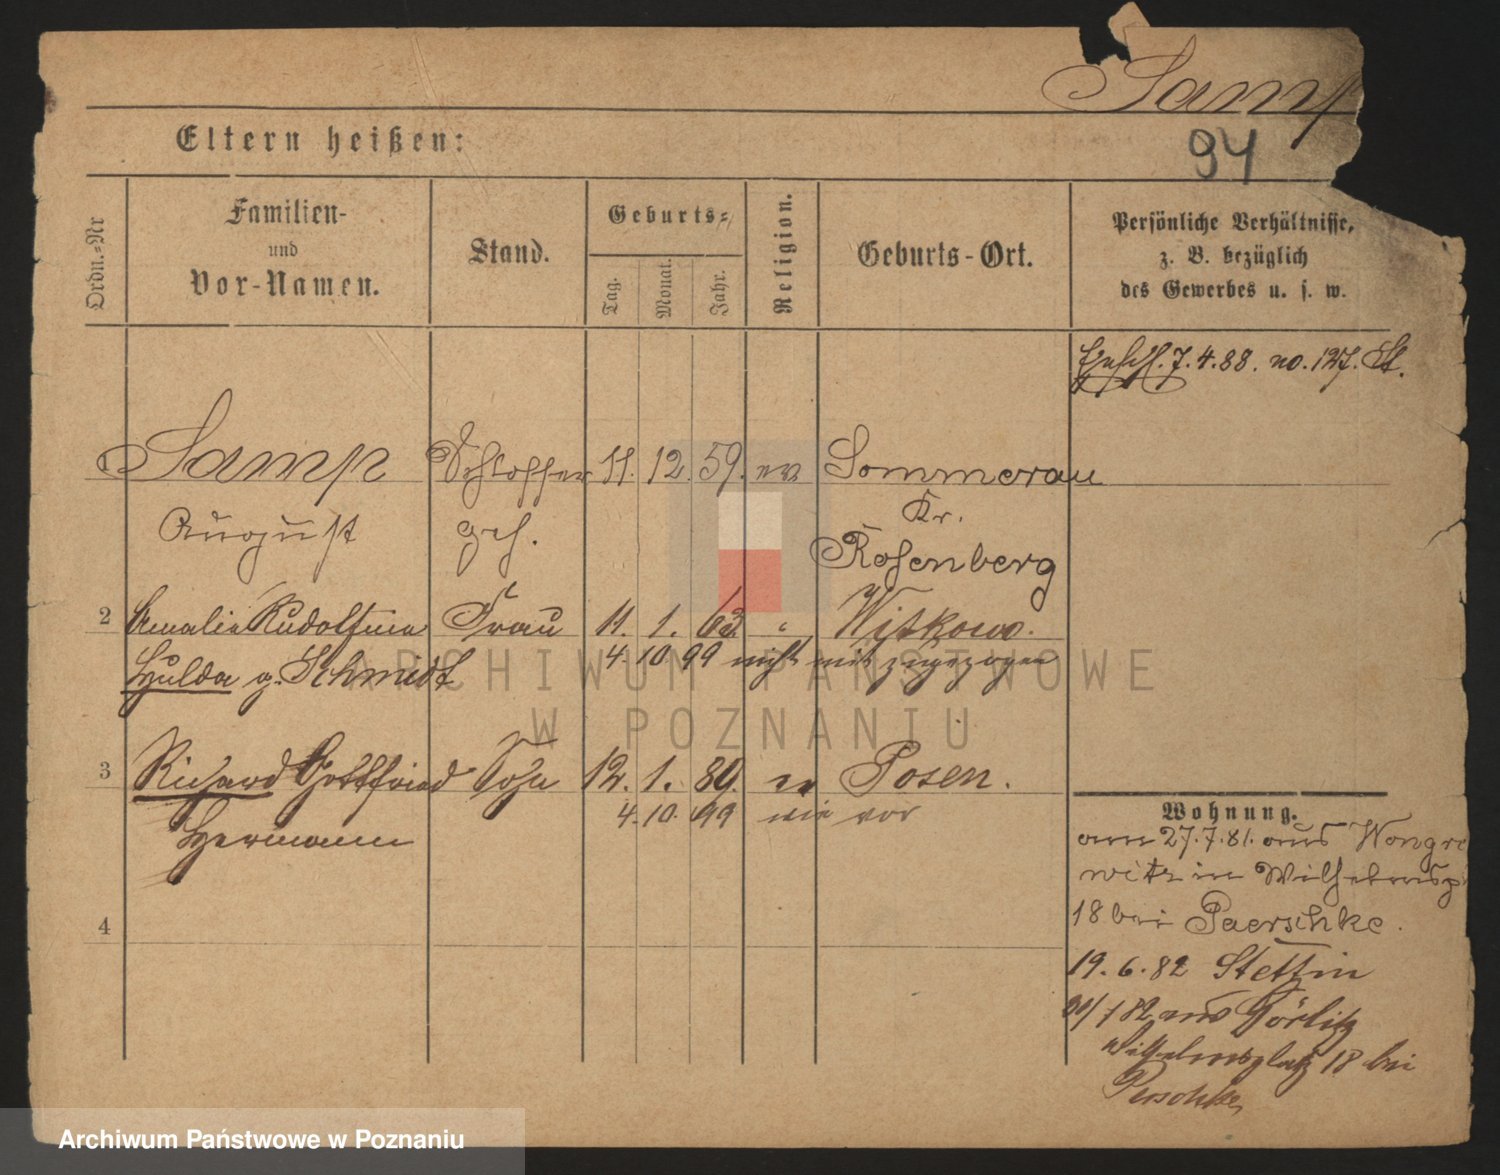 Samp
94
Eltern heißen:
Ordn.-Nr
Familien-
und
Vor-Namen.
Stand.
Geburts-
Tag.
Monat.
Jahr.
Religion.
Geburts-Ort.
Persönliche Verhältnisse,
z. B. bezüglich
des Gewerbes u. s. w.
7.4.88. no. 127. St.
1 Samp Schlosser 11. 12. 59. ev Sommerau
August ges. Kr.
Rosenberg
2 Amalie Rudolfine Frau 11. 1. 63. " Witkowo.
Hulda g. Schmidt 4. 10. 99 nicht mit zugezogen
3 Richard Gottfried Sohn 12. 1. 89. ev Posen.
Hermann 4. 10. 99 wie vor
4
Wohnung.
am 27.7.81. aus Wongro
witz in Wilhelmspl
18 bei Paerschke.
19. 6. 82 Stettin
30/7 82 aus Görlitz
Wilhelmsplatz 18 bei
Perschke
ARCHIWUM PAŃSTWOWE
W POZNANIU
Archiwum Państwowe w Poznaniu